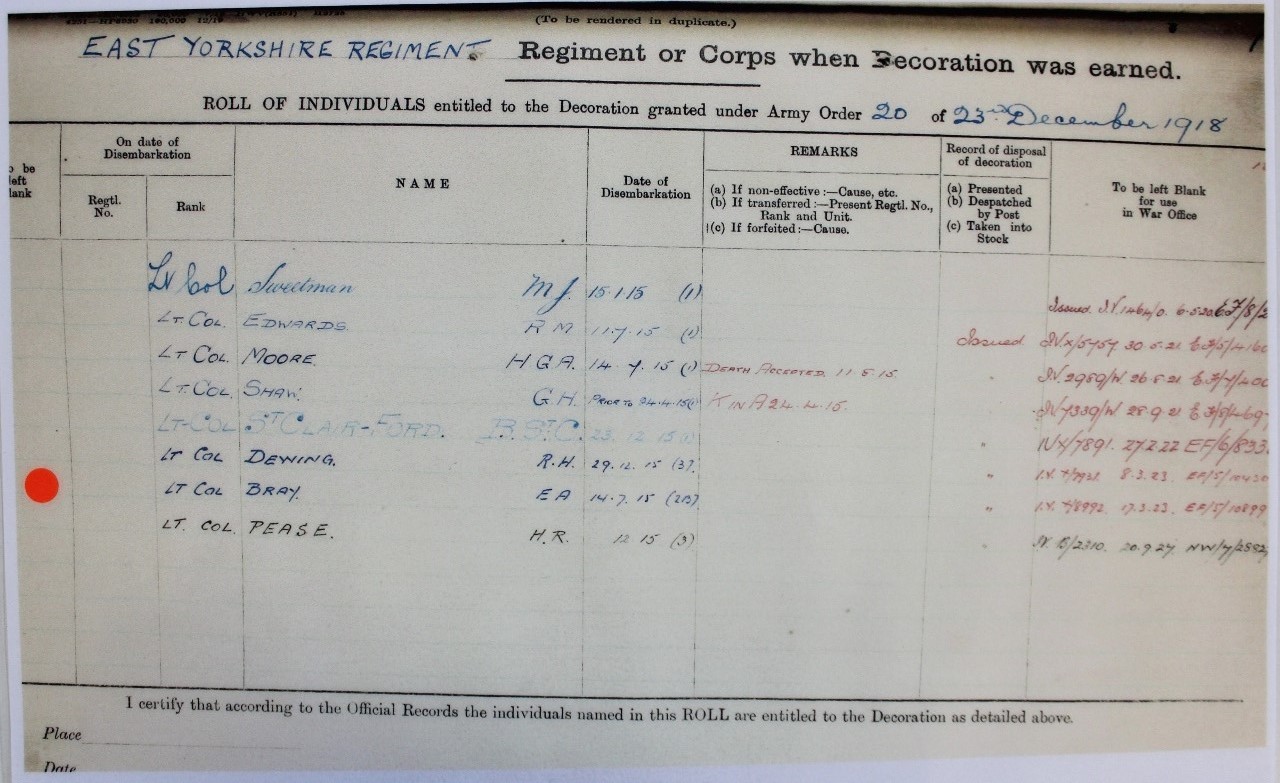 (To be rendered in duplicate.)
EAST YORKSHIRE REGIMENT Regiment or Corps when Decoration was earned.
ROLL OF INDIVIDUALS entitled to the Decoration granted under Army Order 20 of 23rd December 1918
On date of Disembarkation
Regtl. No.
Rank
NAME
Date of Disembarkation
REMARKS
(a) If non-effective :—Cause, etc.
(b) If transferred :—Present Regtl. No., Rank and Unit.
(c) If forfeited :—Cause.
Record of disposal of decoration
(a) Presented
(b) Despatched by Post
(c) Taken into Stock
To be left Blank for use in War Office
Lt Col Sweetman M J. 15.1.15 (1) Issued. 6.5.20
LT. COL. EDWARDS. R M 11.7.15 (1) Issued IVX/5757 30.5.21
LT COL. MOORE. H G A. 14.4.15 (1) DEATH ACCEPTED. 11.5.15. " IV.2989/W. 26.5.21
LT. COL. SHAW. G.H. PRIOR TO 24.4.15 K IN A 24.4.15. IV/7339/W 28.9.21
LT-COL ST CLAIR-FORD. B. ST C. 23.12.15 " IVX/7891. 27.2.22 EF/6/833
LT COL DEWING. R.H. 29.12.15 (3) " 8.3.23.
LT COL BRAY. E A 14.7.15 (2B) " 17.3.23. EF/5/10899
LT. COL. PEASE. H.R. 12.15 (3) " IV.B/2310. 20.9.27. NW/7/
I certify that according to the Official Records the individuals named in this ROLL are entitled to the Decoration as detailed above.
Place
Date